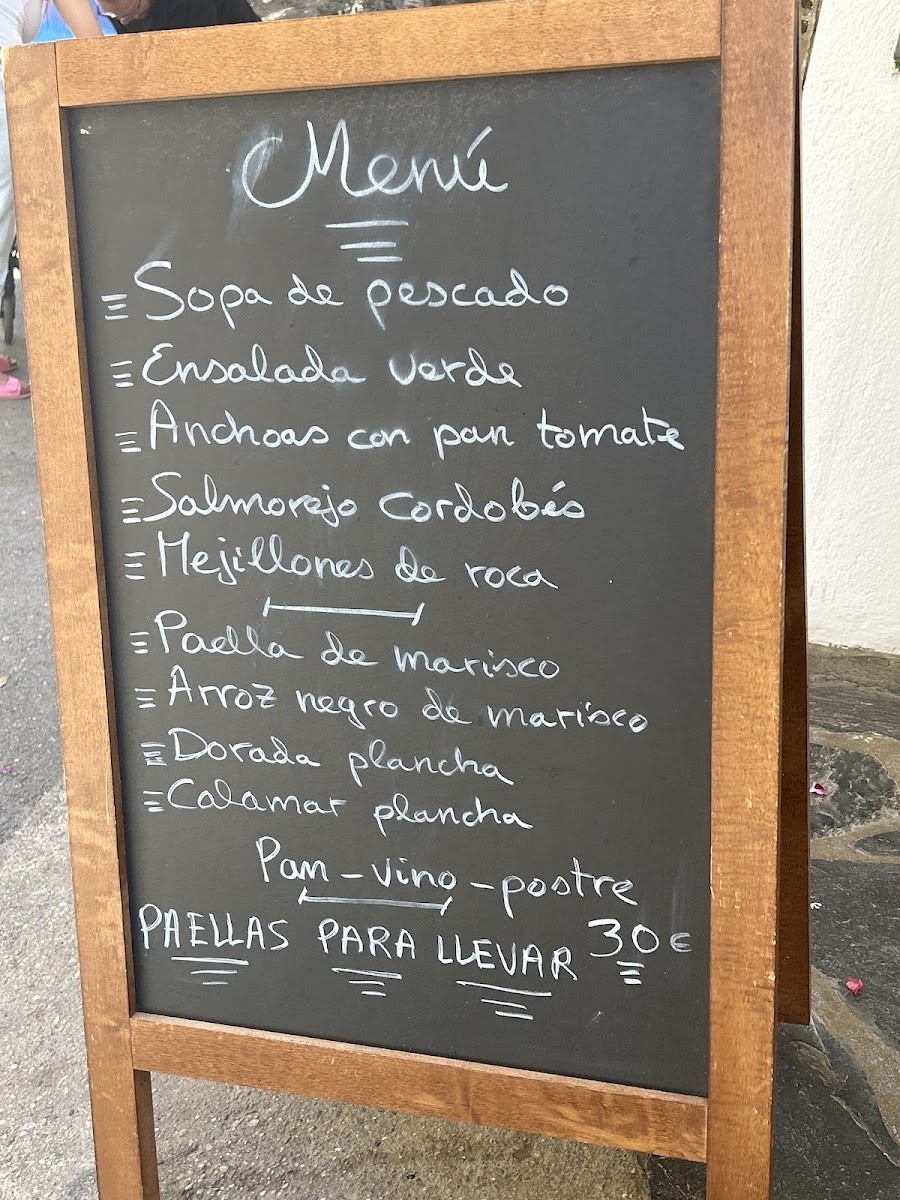 Menú
Sopa de pescado
Ensalada verde
Anchoas con pan tomate
Salmorejo cordobés
Mejillones de roca
Paella de marisco
Arroz negro de marisco
Dorada plancha
Calamar plancha
Pan - vino - postre
PAELLAS PARA LLEVAR 30€